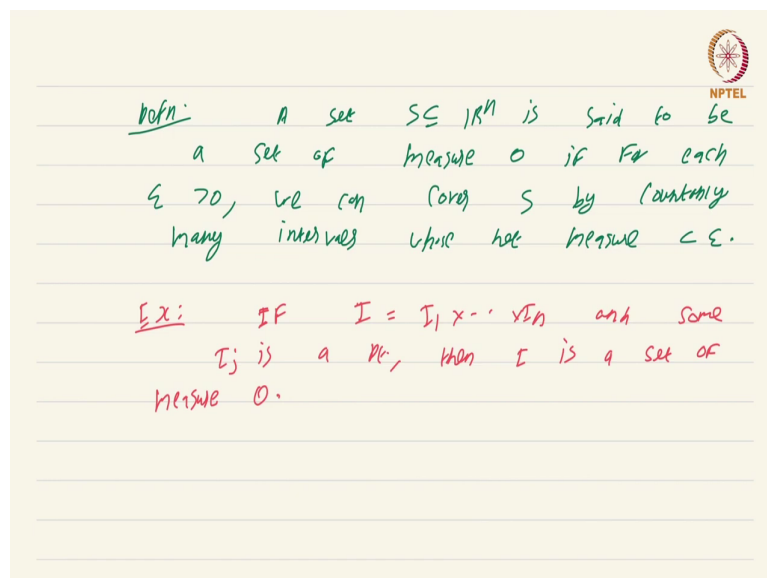 NPTEL
Defn: A set S ⊆ ℝⁿ is said to be
a set of measure 0 if for each
ε > 0, we can cover S by countably
many intervals whose net measure < ε.
Ex: IF I = I₁ x -- xIₙ and some
Iⱼ is a pt, then I is a set of
measure 0.